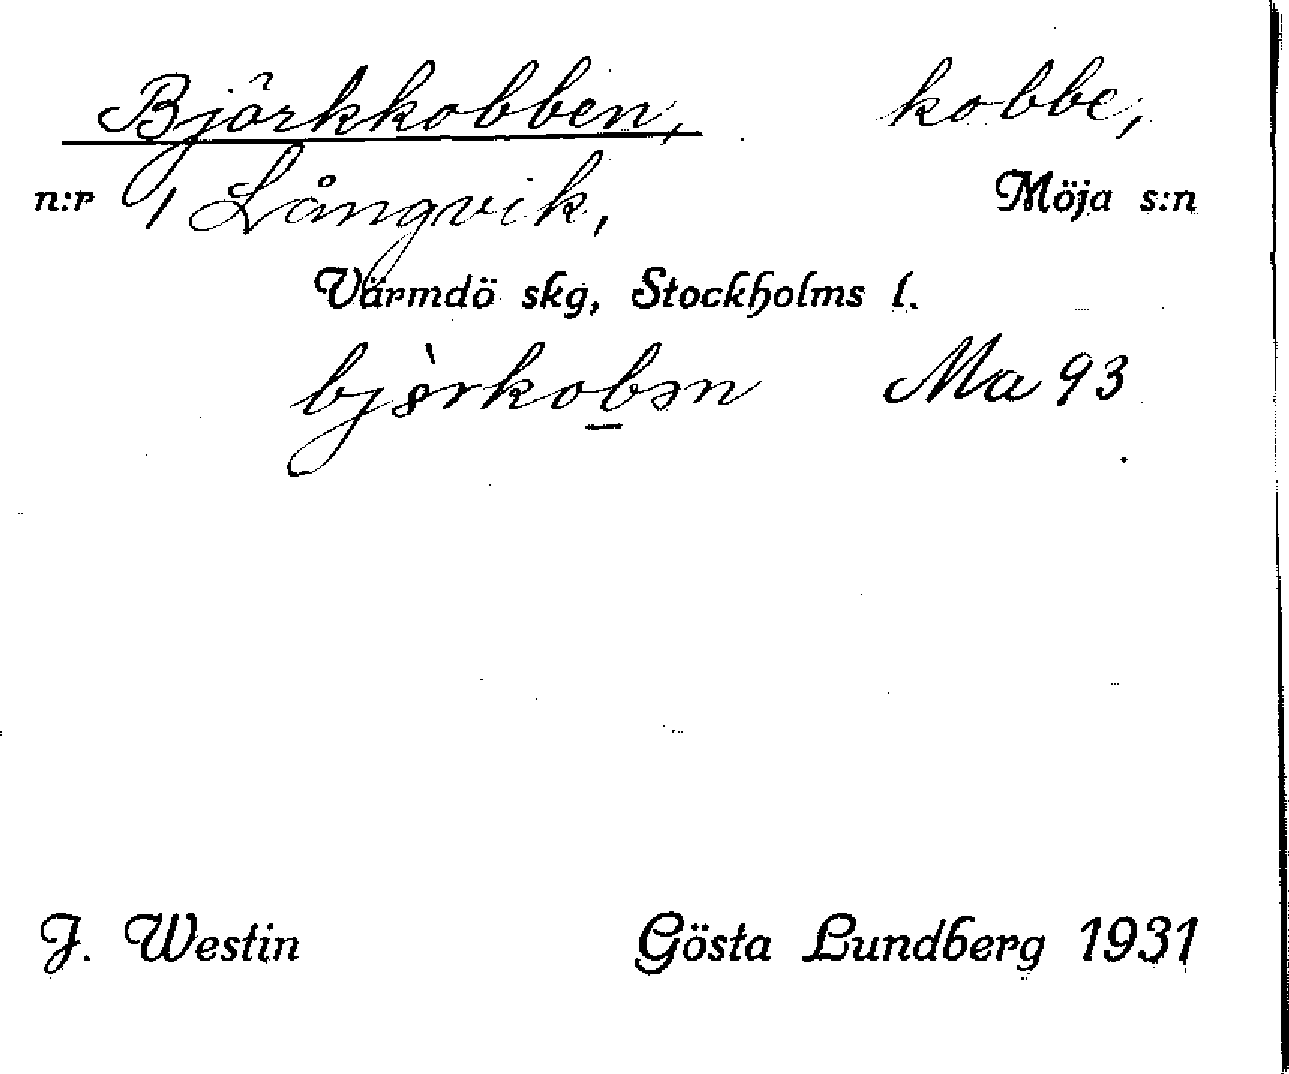 Björkkobben, kobbe,
n:r 1 Långvik, Möja s:n
Värmdö skg, Stockholms l.
bjò̤rkob̲ən Ma 93
J. Westin Gösta Lundberg 1931